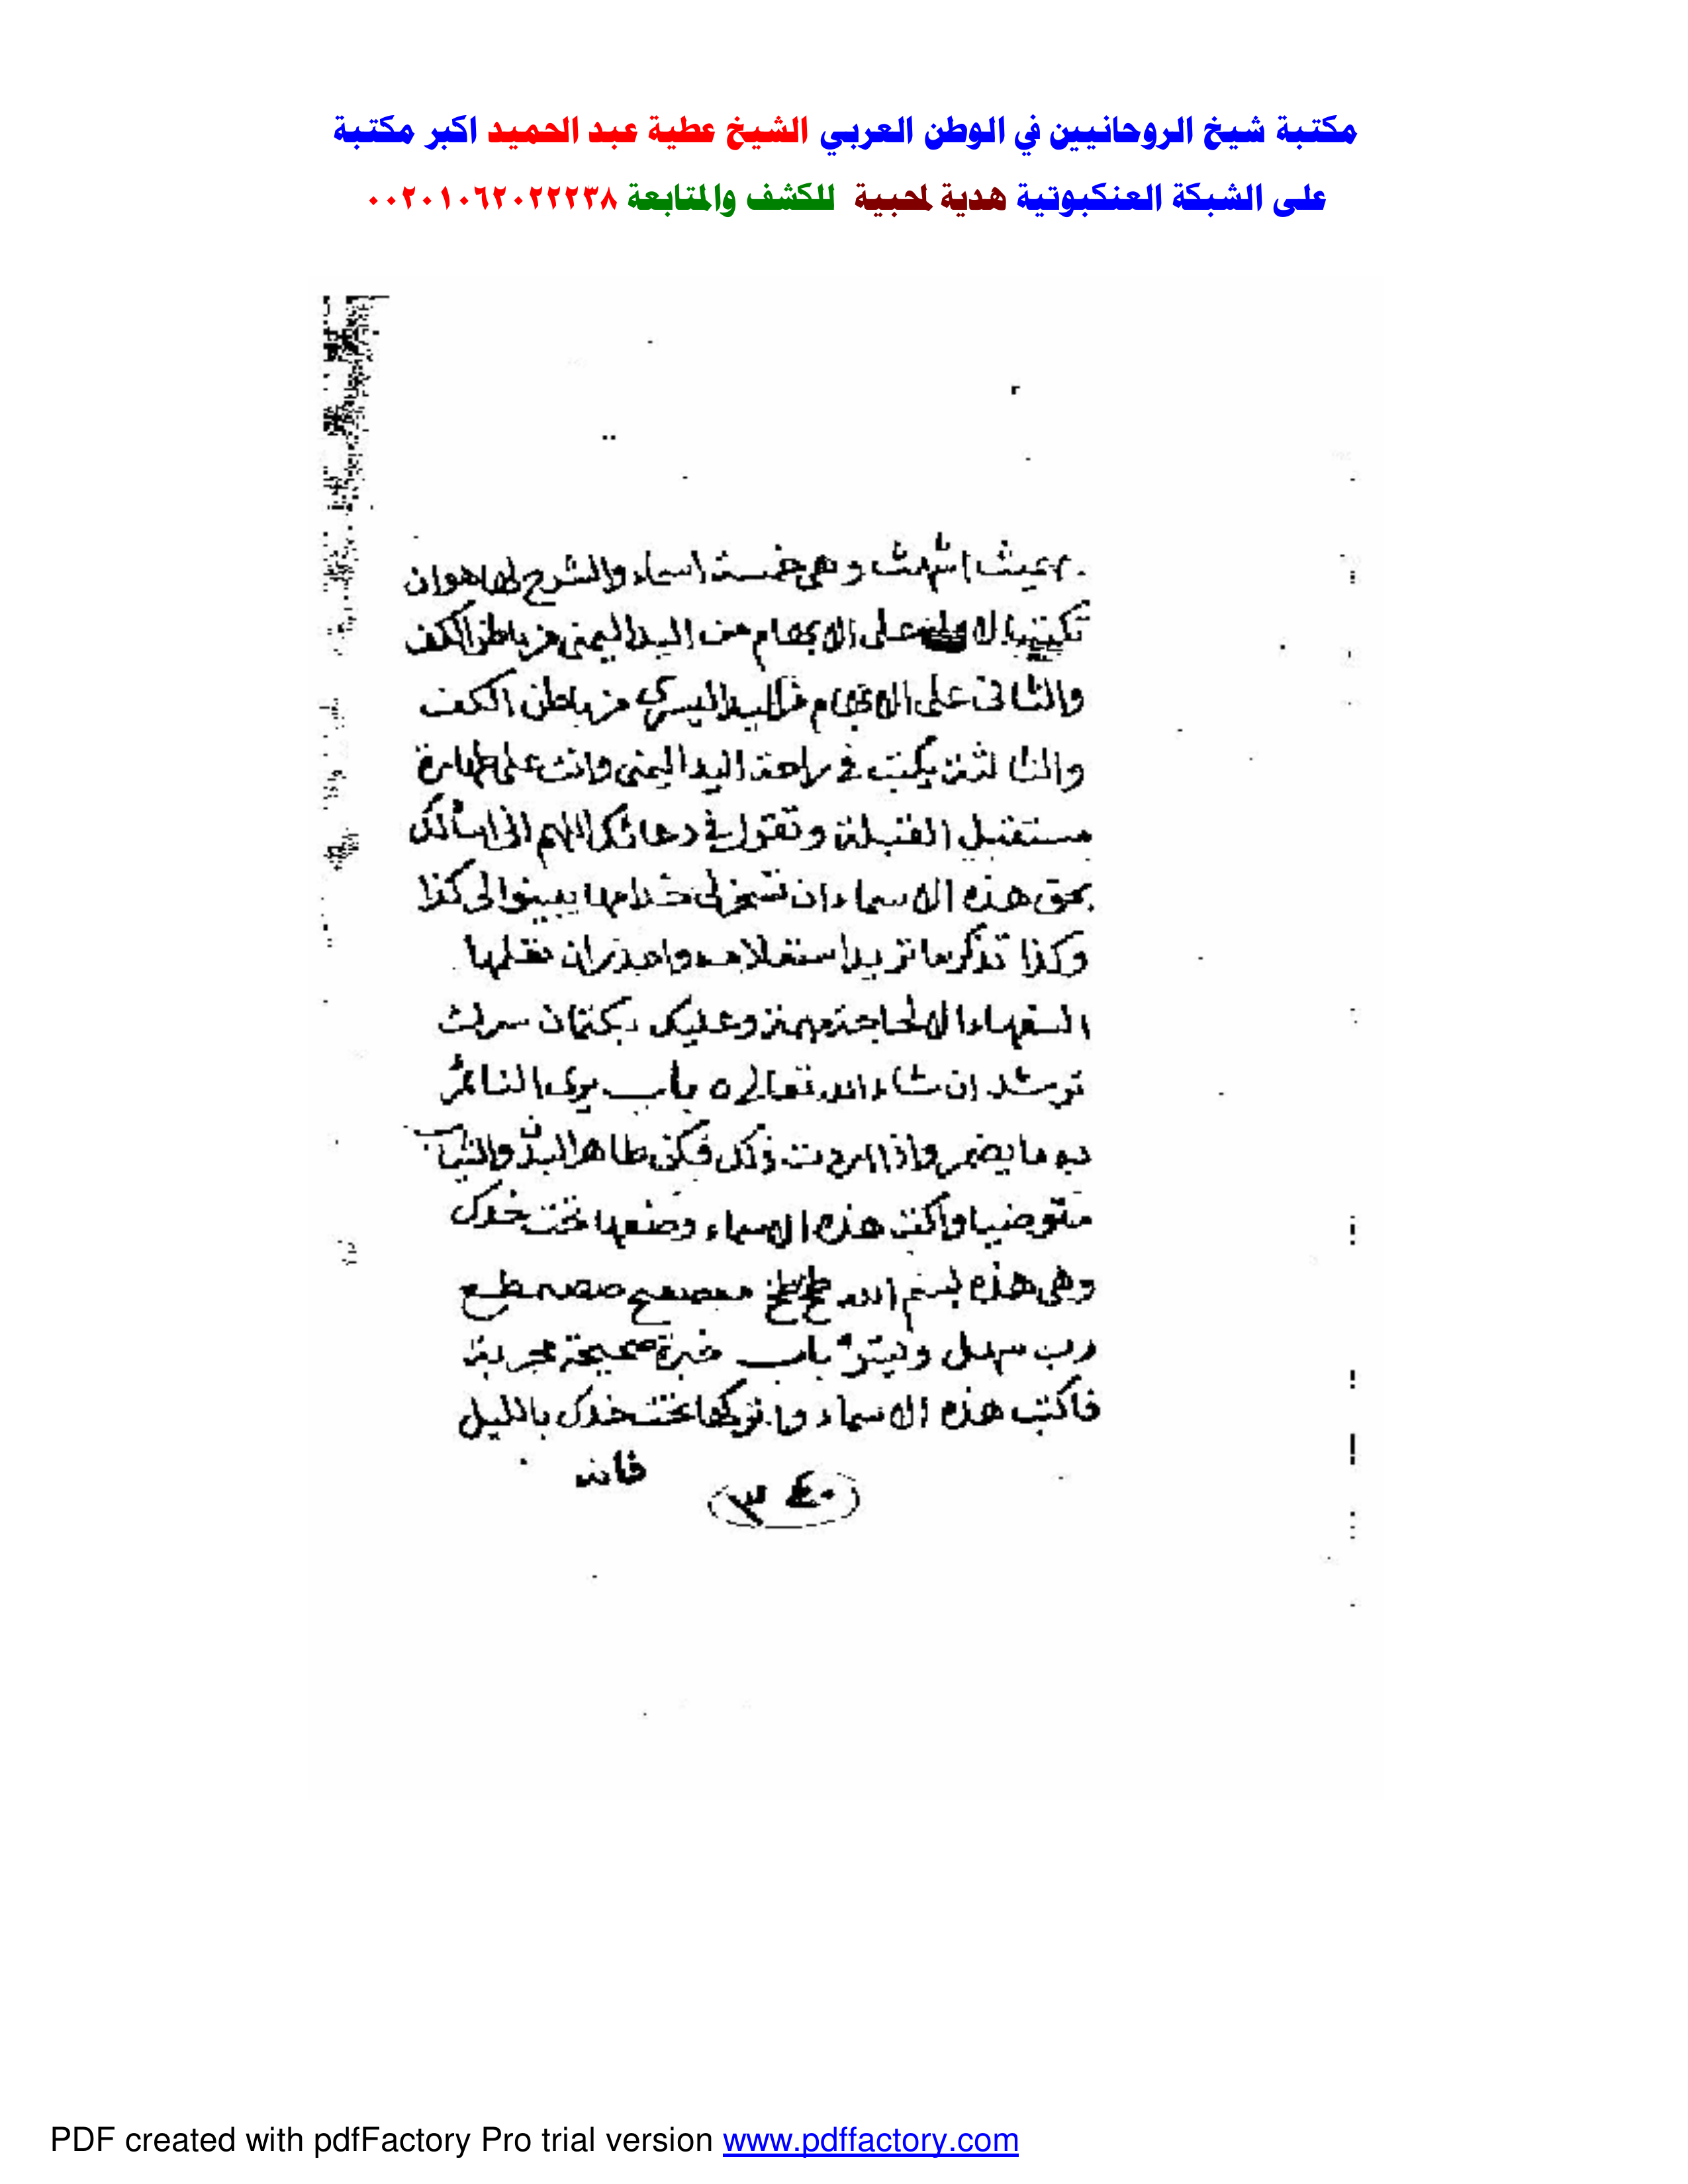 مكتبة شيخ الروحانيين في الوطن العربي الشيخ عطية عبد الحميد اكبر مكتبة
على الشبكة العنكبوتية هدية لمحبية للكشف والمتابعة ٠٠٢٠١٠٦٢٠٢٢٢٣٨
وهي خمسة اسماء والشرح لها هو ان
تكتب على الابهام من اليد اليمنى من باطن الكف
والثاني على الابهام من اليد اليسرى من باطن الكف
والثالثة يكتب في راحة اليد اليمنى وانت على طهارة
مستقبل القبلة وتقول في دعائك اللهم اني اسألك
بحق هذه الاسماء ان تسخر لي خدامها يبينوا لي كذا
وكذا تذكر ما تريد استعلامه واحذر ان تعلمها
السفهاء الا لحاجة مهمة وعليك بكتمان سرك
ترشد ان شاء الله تعالى ه باب يرى النائم
فيه ما يضمر واذا اردت ذلك فكن طاهر البدن والثياب
متوضيا واكتب هذه الاسماء وضعها تحت خدك
وهي هذه بسم الله
رب سهل ويسر باب خبرة صحيحة مجربة
فاكتب هذه الاسماء واتركها تحت خدك بالليل
فانه
٣٤٠
PDF created with pdfFactory Pro trial version www.pdffactory.com